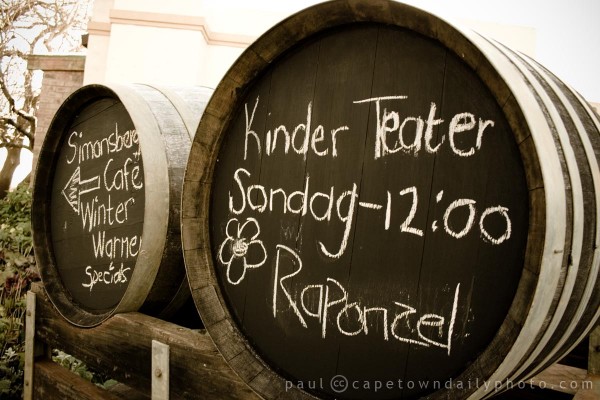 Simonsberg
Café
Winter
Warmer
Specials
Kinder Teater
Sondag-12:00
Raponzel
paul cc capetowndailyphoto.com